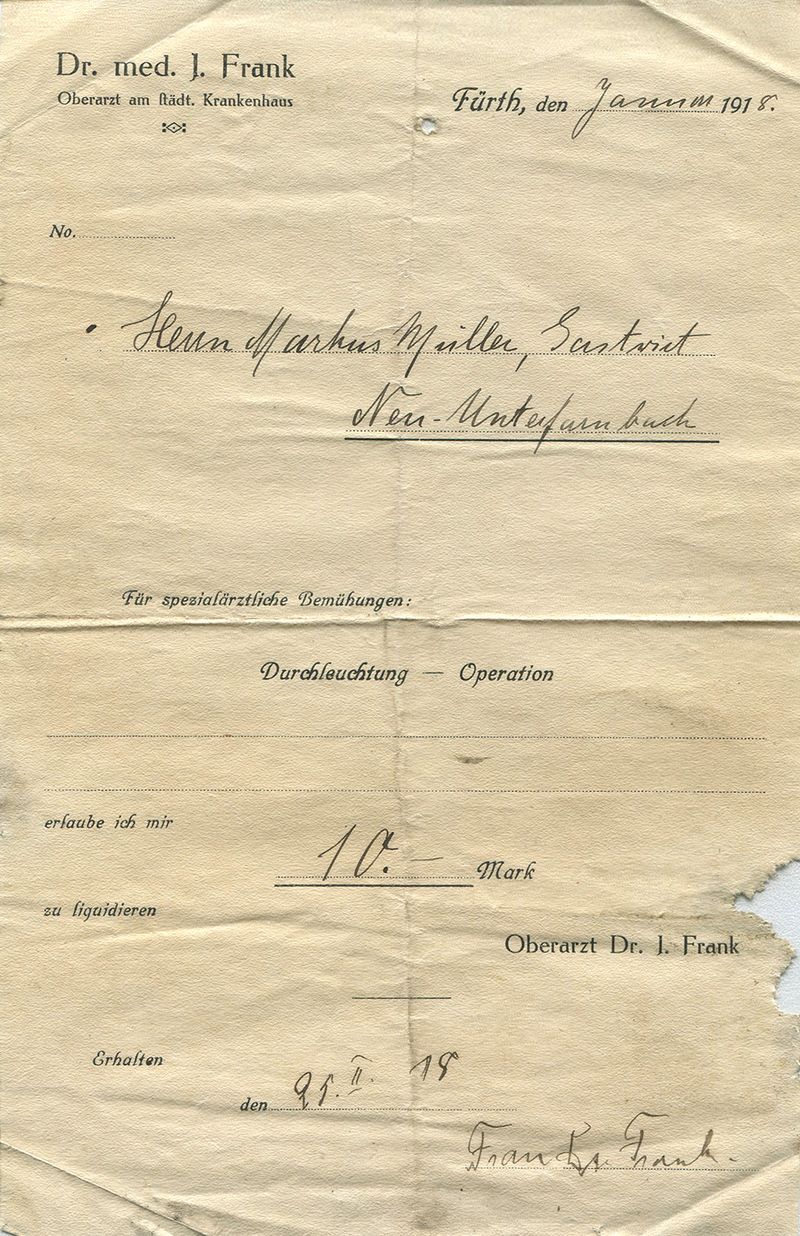 Dr. med. J. Frank
Oberarzt am städt. Krankenhaus
Fürth, den Januar 1918.
No.
Herrn Markus Müller, Gastwirt
Neu-Unterfarnbach
Für spezialärztliche Bemühungen:
Durchleuchtung — Operation
erlaube ich mir
10.— Mark
zu liquidieren
Oberarzt Dr. J. Frank
Erhalten
den 25. II. 18
Frank